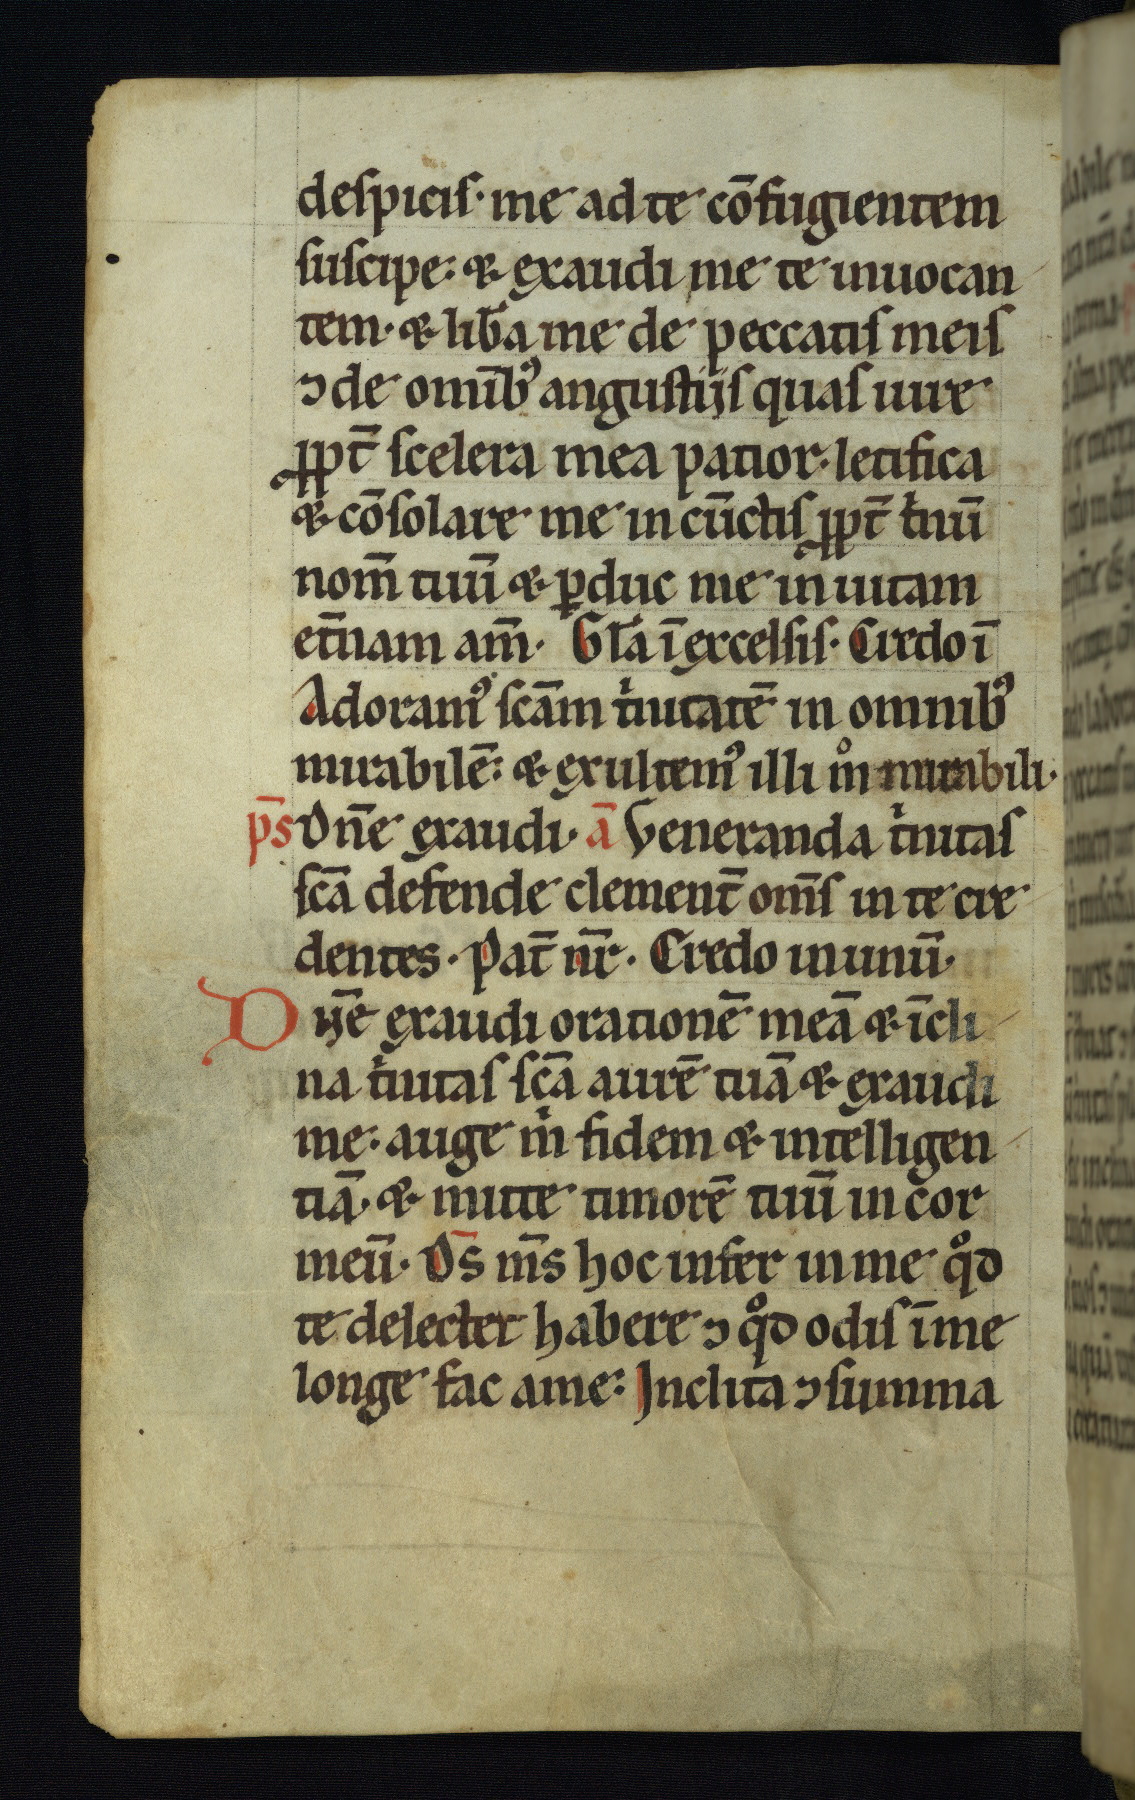 despicis· me ad te cōfugientem
suscipe: & exaudi me te inuocan
tem· & lib̄a me de peccatis meis
⁊ de omīb⁹ angustijs quas iure
ꝓpt̄ scelera mea patior· letifica
& cōsolare me in cūctis ꝓpt̄ tͥnū
nom̄ tuū & ꝑduc me in uitam
et̄nam am̄· Gl̄a ī excelsis· Credo ī
Adoram⁹ scām tͥnitatē in omnib⁹
mirabilē: & exultem⁹ illi mͦ mirabili·
p̄s Dn̄e exaudi· ā Veneranda tͥnitas
scā defende clement̄ om̄s in te cre
dentes· Pat̄ nr̄· Credo in unū·
Dn̄e exaudi orationē meā & īcli
na tͥnitas scā aurē tuā & exaudi
me: auge mͥ fidem & intelligen
tiā· & mitte timorē tuū in cor
meū· Ds̄ ms̄ hoc infer in me qͦd
te delectet habere ⁊ qͦd odis ī me
longe fac a me: Inclita ⁊ summa